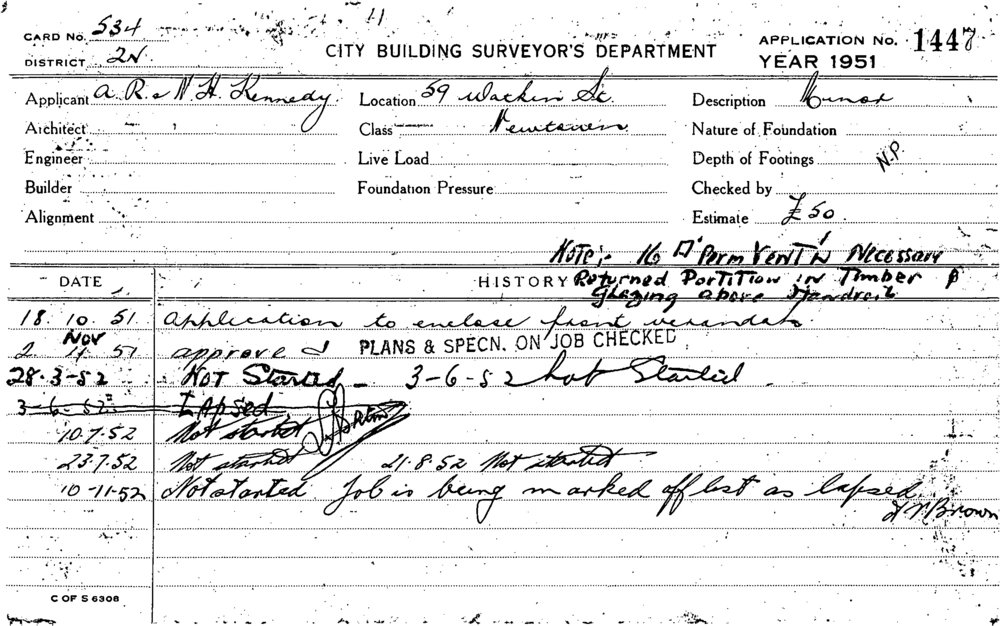 CARD No. 534
DISTRICT 2N
CITY BUILDING SURVEYOR'S DEPARTMENT
APPLICATION No. 1447
YEAR 1951
Applicant A. R. & N. H. Kennedy
Location 59 St.
Description Minor
Architect
Class Newtown
Nature of Foundation
Engineer
Live Load
Depth of Footings N.P.
Builder
Foundation Pressure
Checked by
Alignment
Estimate £50
Note:- 16 □" Perm Vent'n Necessary
DATE
HISTORY Returned Partition in Timber &
Glazing above Handrail
18. 10. 51 Application to enclose front verandah
2 Nov 11 51 approved PLANS & SPECN. ON JOB CHECKED
28-3-52 Not Started - 3-6-52 Not Started
3-6-52 Lapsed
10.7.52 Not started
23.7.52 Not started 21.8.52 Not started
10-11-52 Not started Job is being marked off list as lapsed
Brown
C OF S 6308